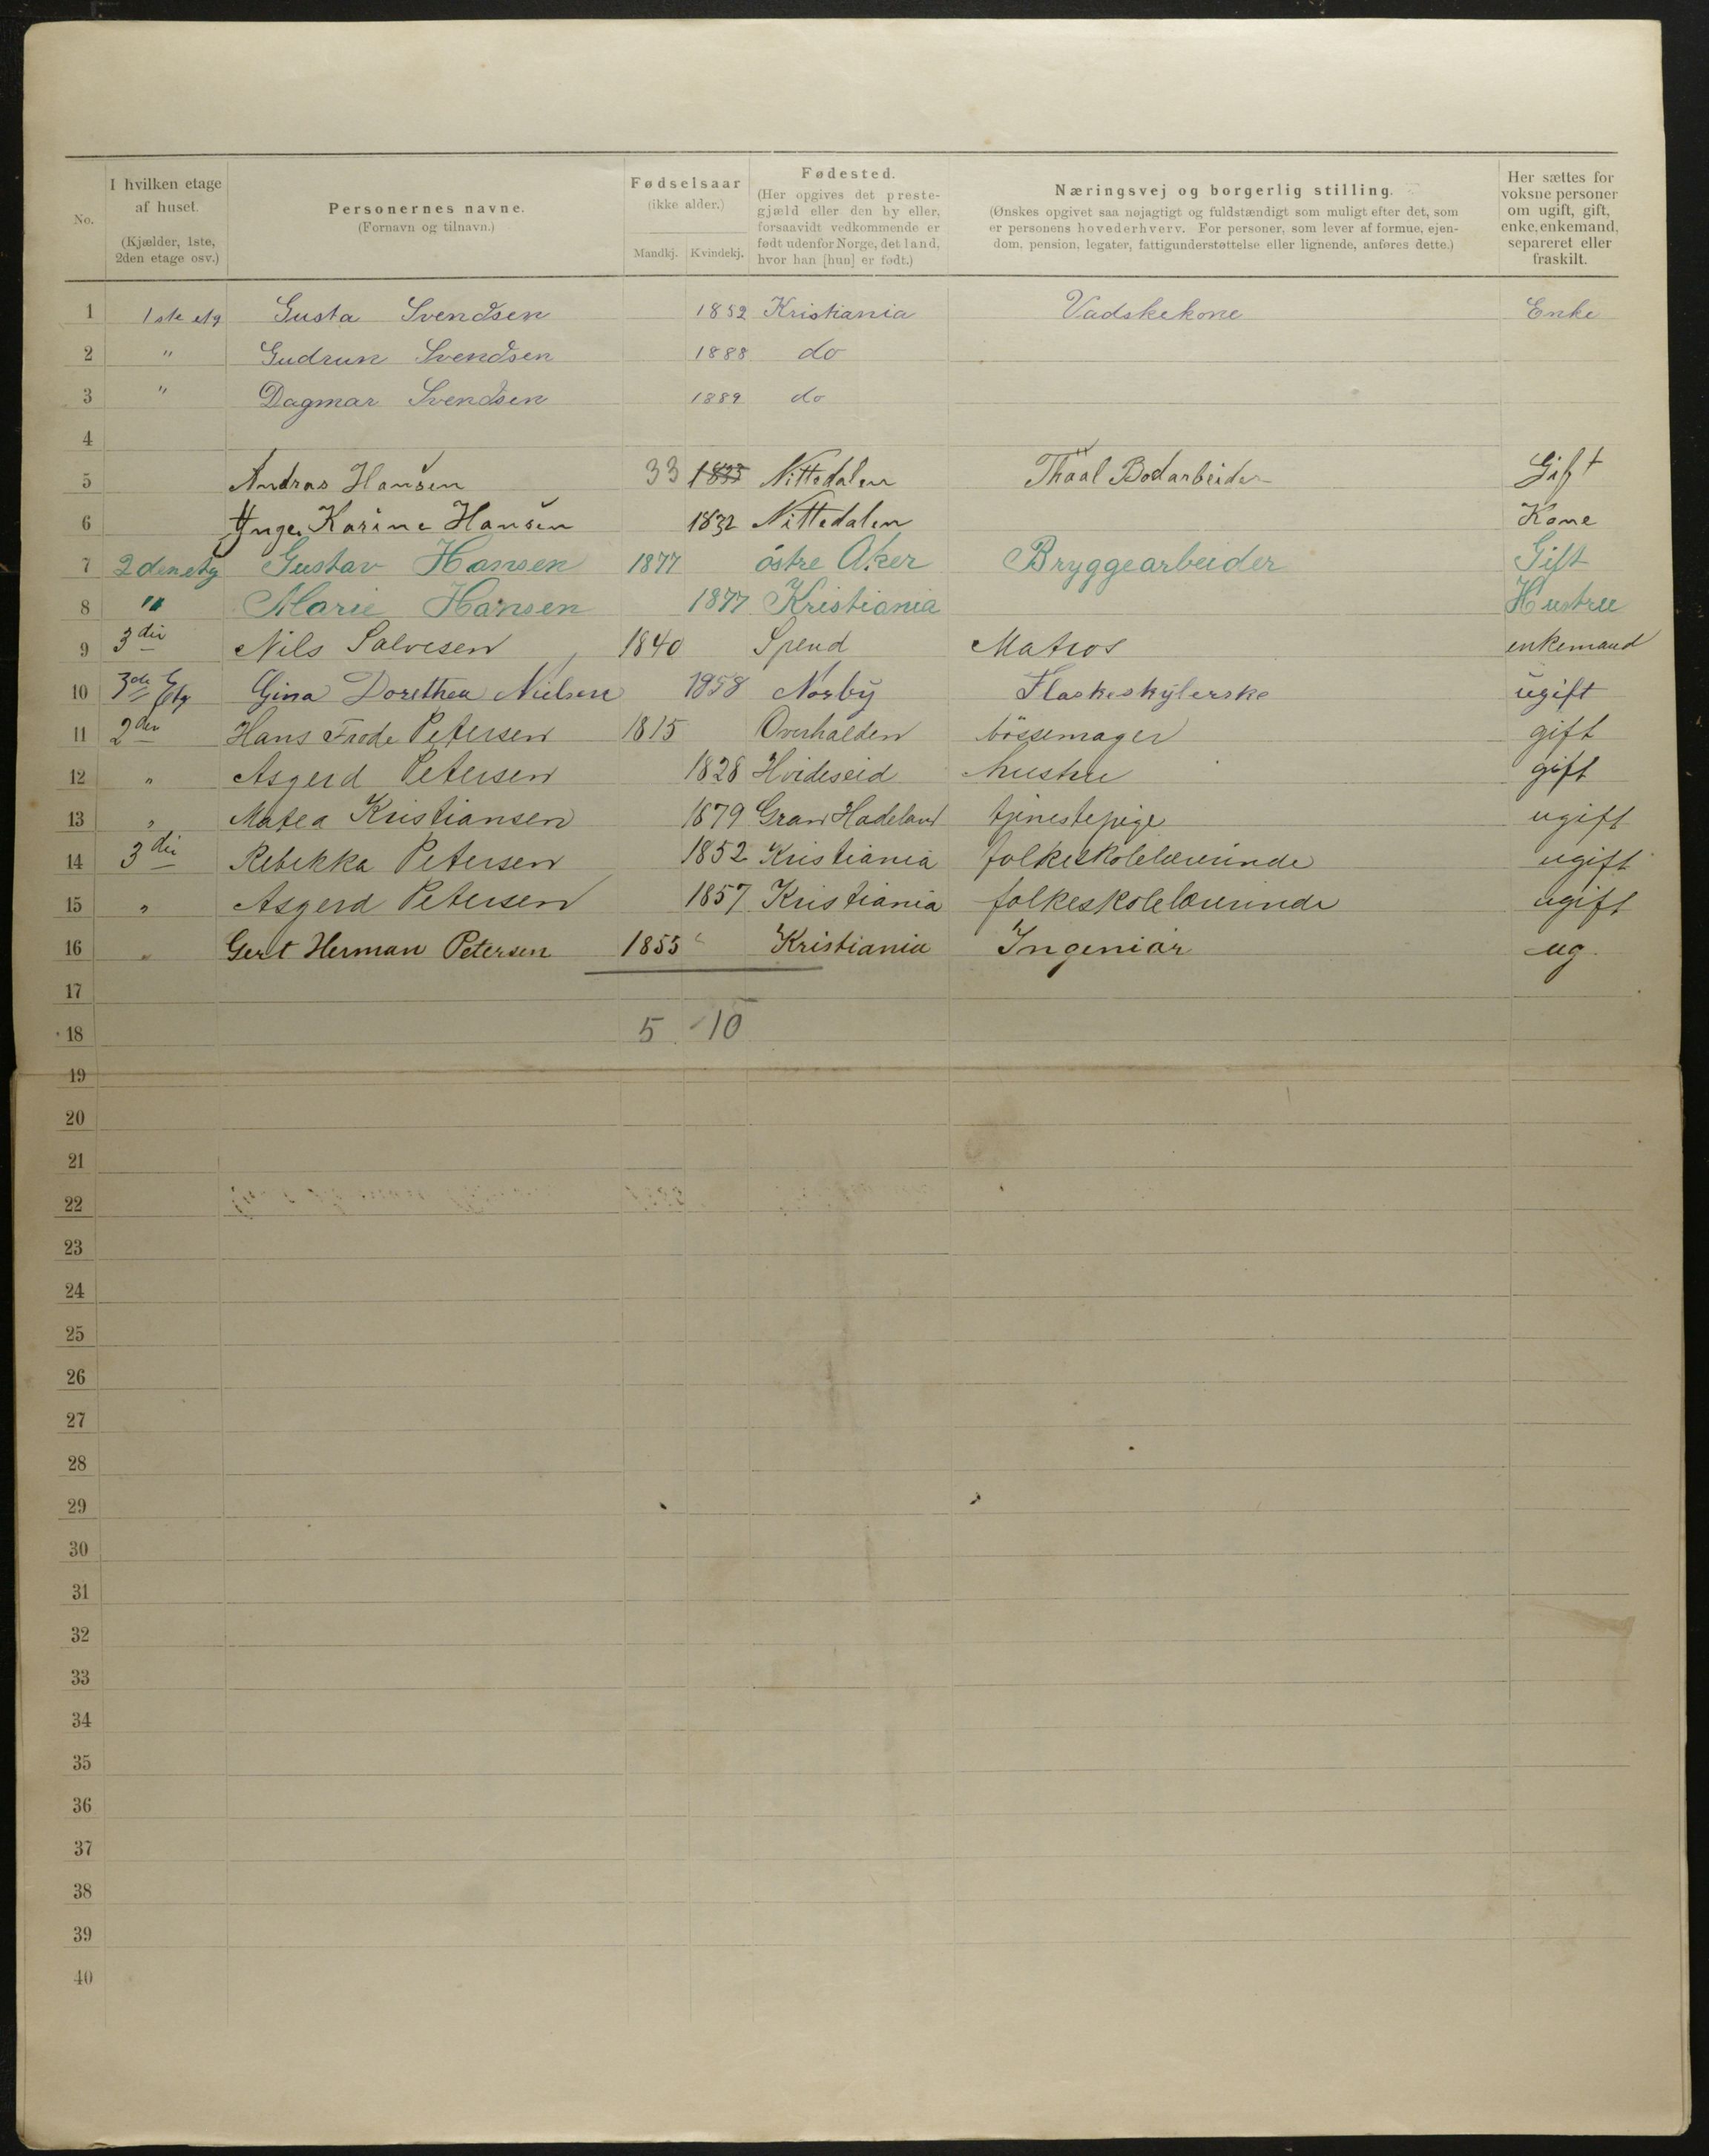 No.
I hvilken etage af huset. (Kjælder, 1ste, 2den etage osv.)
Personernes navne. (Fornavn og tilnavn.)
Fødselsaar (ikke alder.) Mandkj. Kvindekj.
Fødested. (Her opgives det prestegjæld eller den by eller, forsaavidt vedkommende er født udenfor Norge, det land, hvor han [hun] er født.)
Næringsvej og borgerlig stilling. (Ønskes opgivet saa nøjagtigt og fuldstændigt som muligt efter det, som er personens hovederhverv. For personer, som lever af formue, ejendom, pension, legater, fattigunderstøttelse eller lignende, anføres dette.)
Her sættes for voksne personer om ugift, gift, enke, enkemand, separeret eller fraskilt.
1 1ste etg Gusta Svendsen 1852 Kristiania Vadskekone Enke
2 " Gudrun Svendsen 1888 do
3 " Dagmar Svendsen 1889 do
4
5 Andras Hansen 33 1833 Nittedalen Thaal Bodarbeider Gift
6 Ynger Karine Hansen 1832 Nittedalen Kone
7 2den etg Gustav Hansen 1877 östre Aker Bryggearbeider Gift
8 " Marie Hansen 1877 Kristiania Hustru
9 3die Nils Salvesen 1840 Matros enkemand
10 3de Etg Gina Dorethea Nielsen 1858 Norby Flaskeskylerske ugift
11 2den Hans Frode Petersen 1815 Overhalden bössemager gift
12 " Asgerd Petersen 1828 Hvideseid hustru gift
13 " Matea Kristiansen 1879 Gran Hadeland tjenestepige ugift
14 3die Rebekka Petersen 1852 Kristiania folkeskolelærerinde ugift
15 " Asgerd Petersen 1857 Kristiania folkeskolelærerinde ugift
16 " Gert Herman Petersen 1855 Kristiania Ingeniør ug.
17
18 5 10
19
20
21
22
23
24
25
26
27
28
29
30
31
32
33
34
35
36
37
38
39
40